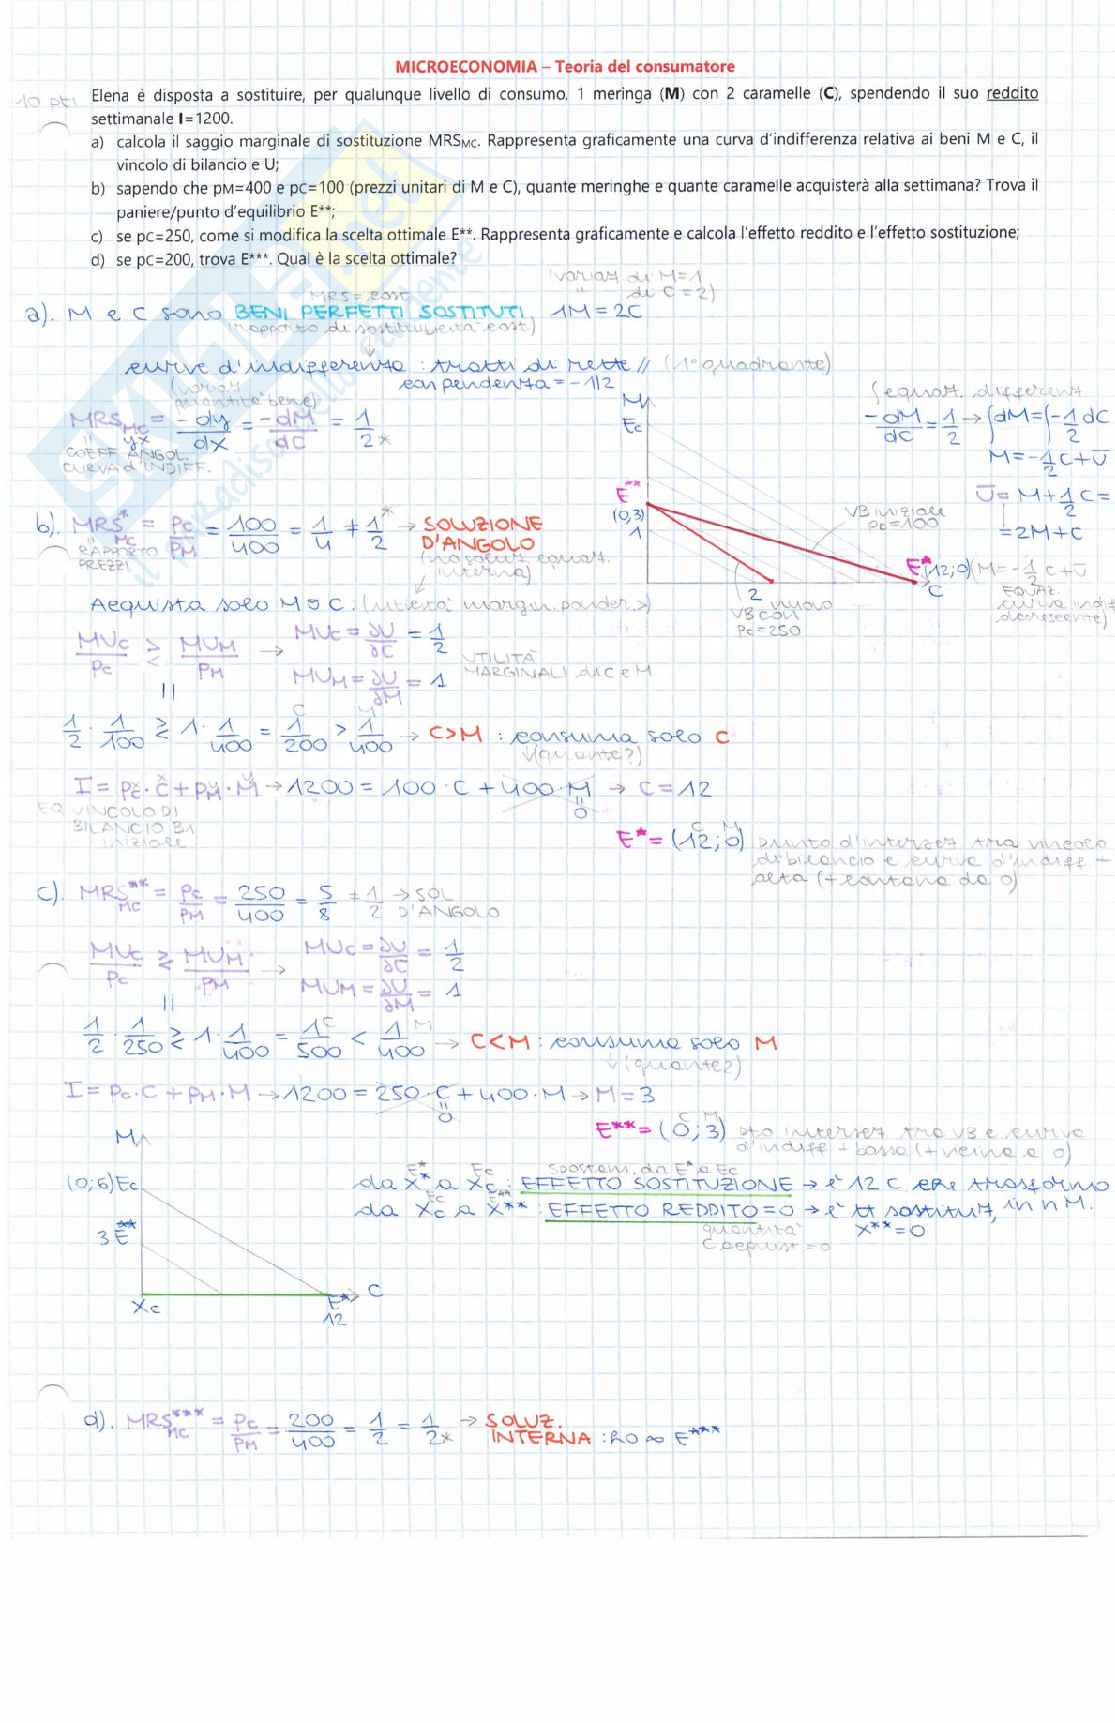 MICROECONOMIA – Teoria del consumatore
10 pti
Elena è disposta a sostituire, per qualunque livello di consumo, 1 meringa (M) con 2 caramelle (C), spendendo il suo reddito
settimanale I=1200.
a) calcola il saggio marginale di sostituzione MRSMC. Rappresenta graficamente una curva d'indifferenza relativa ai beni M e C, il
vincolo di bilancio e U;
b) sapendo che pM=400 e pc=100 (prezzi unitari di M e C), quante meringhe e quante caramelle acquisterà alla settimana? Trova il
paniere/punto d'equilibrio E**;
c) se pc=250, come si modifica la scelta ottimale E**. Rappresenta graficamente e calcola l'effetto reddito e l'effetto sostituzione;
d) se pc=200, trova E***. Qual è la scelta ottimale?
variaz di M=1
MRS = cost di C=2)
a). M e C sono BENI PERFETTI SOSTITUTI, 1M = 2C
(rapporto di sostituibilità cost)
curve d'indifferenza : tratti di rette // (1° quadrante)
con pendenza = -1/2
(variaz
quantità bene)
MRS MC = -dy/dx = -dM/dC = 1/2*
yx
COEFF ANGOL.
CURVA d'INDIFF.
(equaz. different
-dM/dC = 1/2 → ∫dM = ∫-1/2 dC
M = -1/2 C + U
U = M + 1/2 C =
= 2M + C
M
Ec
E**
(0,3)
1
VB iniziale
pc=100
E* (12;0) M = -1/2 C + U
C
EQUAZ.
curva indif
decrescente)
2
nuovo
VB con
Pc=250
b). MRS* MC = Pc/PM = 100/400 = 1/4 ≠ 1/2* → SOLUZIONE
D'ANGOLO
RAPPORTO
PREZZI
(no soluz equaz.
interna)
Acquista solo M o C. (utilità margin. ponder. >)
MUc/Pc ≥< MUM/PM → MUc = ∂U/∂C = 1/2
MUM = ∂U/∂M = 1
UTILITÀ
MARGINALI di C e M
1/2 · 1/100 ≥< 1 · 1/400 = 1/200 > 1/400 → C>M : consuma solo C
(quante?)
I = pc · C + pM · M → 1200 = 100 · C + 400 · M → C = 12
0
EQ VINCOLO DI
BILANCIO B1
INIZIALE
E* = (12; 0) punto d'intersez tra vincolo
di bilancio e curva d'indiff +
alta (+ lontana da 0)
c). MRS** MC = pc/PM = 250/400 = 5/8 ≠ 1/2 → SOL
D'ANGOLO
MUc/Pc ≥< MUM/PM → MUc = ∂U/∂C = 1/2
MUM = ∂U/∂M = 1
1/2 · 1/250 ≥< 1 · 1/400 = 1/500 < 1/400 → C<M : consuma solo M
(quante?)
I = Pc · C + PM · M → 1200 = 250 · C + 400 · M → M = 3
0
E** = (0; 3) pto intersez tra VB e curva
d'indiff + bassa (+ vicina a 0)
M
(0;6) Ec
3 E**
Xc
E*
12
C
E* Ec spostam. da E* a Ec
da x* a xc : EFFETTO SOSTITUZIONE → è 12 C che trasformo
Ec E**
da xc a x** : EFFETTO REDDITO = 0 → è tt sostituz, in n M.
quantità x** = 0
C acquist = 0
d). MRS*** MC = Pc/PM = 200/400 = 1/2 = 1/2* → SOLUZ.
INTERNA : ho ∞ E***